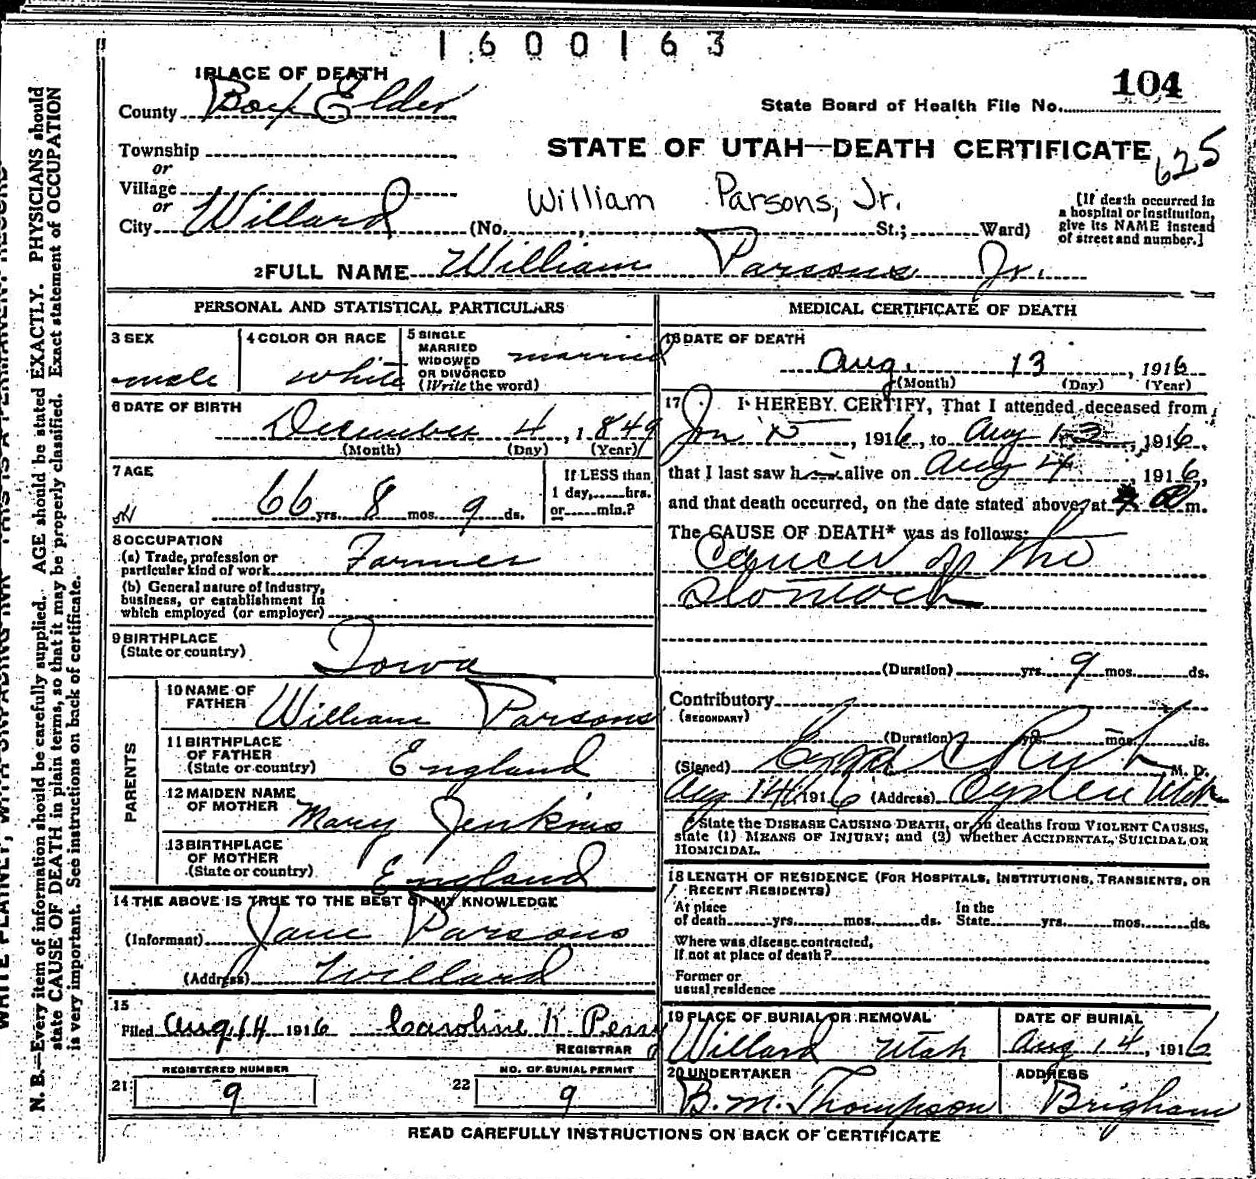 1600163
1 PLACE OF DEATH
County Box Elder
104
State Board of Health File No.
STATE OF UTAH—DEATH CERTIFICATE
625
Township
or
Village
or
City Willard (No. , St.; Ward)
William Parsons, Jr.
[If death occurred in
a hospital or institution,
give its NAME instead
of street and number.]
2 FULL NAME William Parsons Jr.
PERSONAL AND STATISTICAL PARTICULARS
3 SEX
male
4 COLOR OR RACE
white
5 SINGLE
MARRIED
WIDOWED
OR DIVORCED
(Write the word)
married
6 DATE OF BIRTH
December 4, 1849
(Month) (Day) (Year)
7 AGE
66 yrs. 8 mos. 9 ds.
If LESS than
1 day,......hrs.
or......min.?
8 OCCUPATION
(a) Trade, profession or
particular kind of work Farmer
(b) General nature of industry,
business, or establishment in
which employed (or employer)
9 BIRTHPLACE
(State or country)
Iowa
PARENTS
10 NAME OF
FATHER
William Parsons
11 BIRTHPLACE
OF FATHER
(State or country)
England
12 MAIDEN NAME
OF MOTHER
Mary Jenkins
13 BIRTHPLACE
OF MOTHER
(State or country)
England
14 THE ABOVE IS TRUE TO THE BEST OF MY KNOWLEDGE
(Informant) Jane Parsons
(Address) Willard
15
Filed Aug. 14 1916 Caroline K. Perry
REGISTRAR
REGISTERED NUMBER
21 9
NO. OF BURIAL PERMIT
22 9
MEDICAL CERTIFICATE OF DEATH
16 DATE OF DEATH
Aug. 13, 1916
(Month) (Day) (Year)
17 I HEREBY CERTIFY, That I attended deceased from
Jan, 1916, to Aug 13, 1916,
that I last saw him alive on Aug 4, 1916,
and that death occurred, on the date stated above, at m.
The CAUSE OF DEATH* was as follows:
Cancer of the
Stomach
(Duration) yrs. 9 mos. ds.
Contributory
(SECONDARY)
(Duration) yrs. mos. ds.
(Signed) M. D.
Aug 14 1916 (Address) Ogden Utah
*State the DISEASE CAUSING DEATH, or, in deaths from VIOLENT CAUSES,
state (1) MEANS OF INJURY; and (2) whether ACCIDENTAL, SUICIDAL OR
HOMICIDAL.
18 LENGTH OF RESIDENCE (FOR HOSPITALS, INSTITUTIONS, TRANSIENTS, OR
RECENT RESIDENTS)
At place
of death yrs. mos. ds.
In the
State yrs. mos. ds.
Where was disease contracted,
If not at place of death?
Former or
usual residence
19 PLACE OF BURIAL OR REMOVAL
Willard Utah
DATE OF BURIAL
Aug 14, 1916
20 UNDERTAKER
B. M. Thompson
ADDRESS
Brigham
READ CAREFULLY INSTRUCTIONS ON BACK OF CERTIFICATE
N. B.—Every item of information should be carefully supplied. AGE should be stated EXACTLY. PHYSICIANS should
state CAUSE OF DEATH in plain terms, so that it may be properly classified. Exact statement of OCCUPATION
is very important. See instructions on back of certificate.